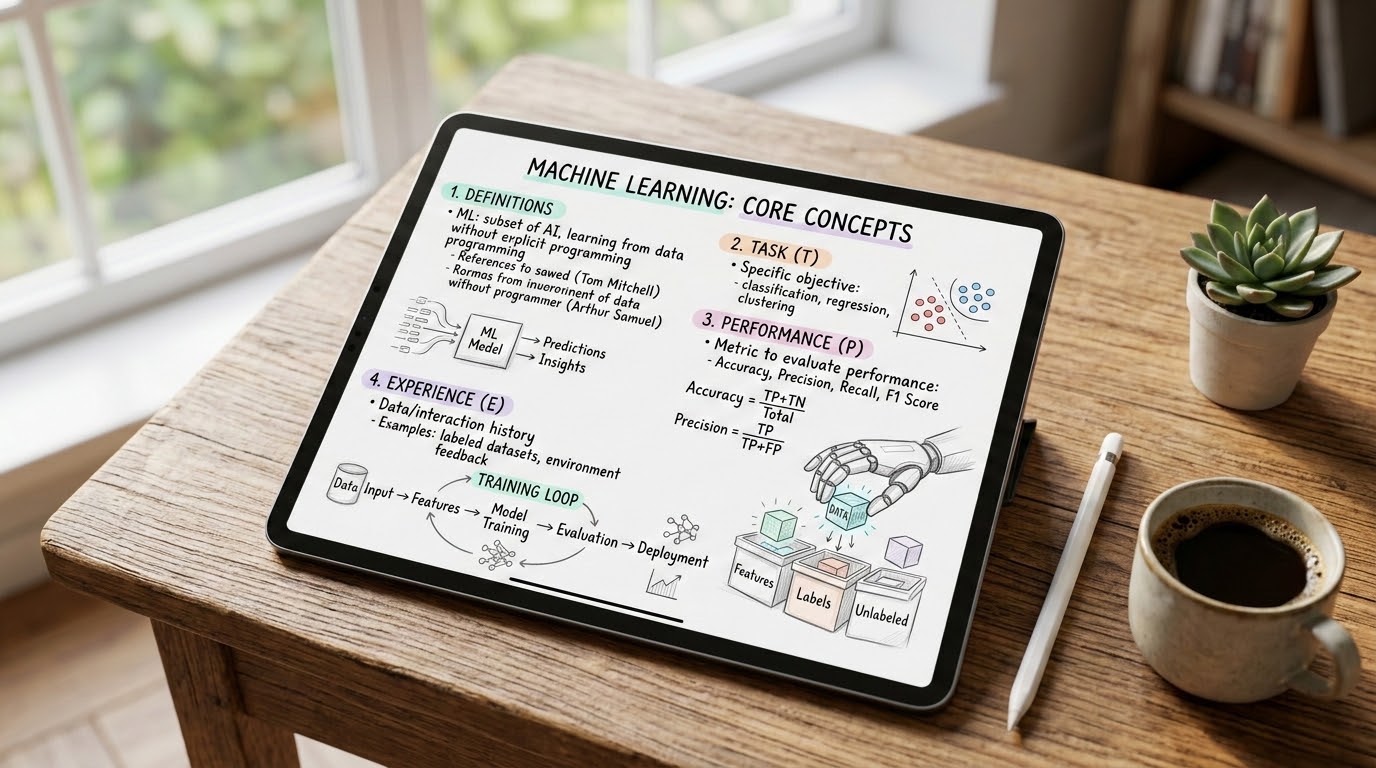 MACHINE LEARNING: CORE CONCEPTS
1. DEFINITIONS
• ML: subset of AI, learning from data
without explicit programming
programming
- References to sawed (Tom Mitchell)
- Rormas from of data
without programmer (Arthur Samuel)
ML
Model
→ Predictions
→ Insights
2. TASK (T)
• Specific objective:
- classification, regression,
clustering
3. PERFORMANCE (P)
• Metric to evaluate performance:
- Accuracy, Precision, Recall, F1 Score
Accuracy = TP+TN
Total
Precision = TP
TP+FP
4. EXPERIENCE (E)
• Data/interaction history
- Examples: labeled datasets, environment
feedback
TRAINING LOOP
Data Input → Features → Model Training → Evaluation → Deployment
DATA
Features
Labels
Unlabeled